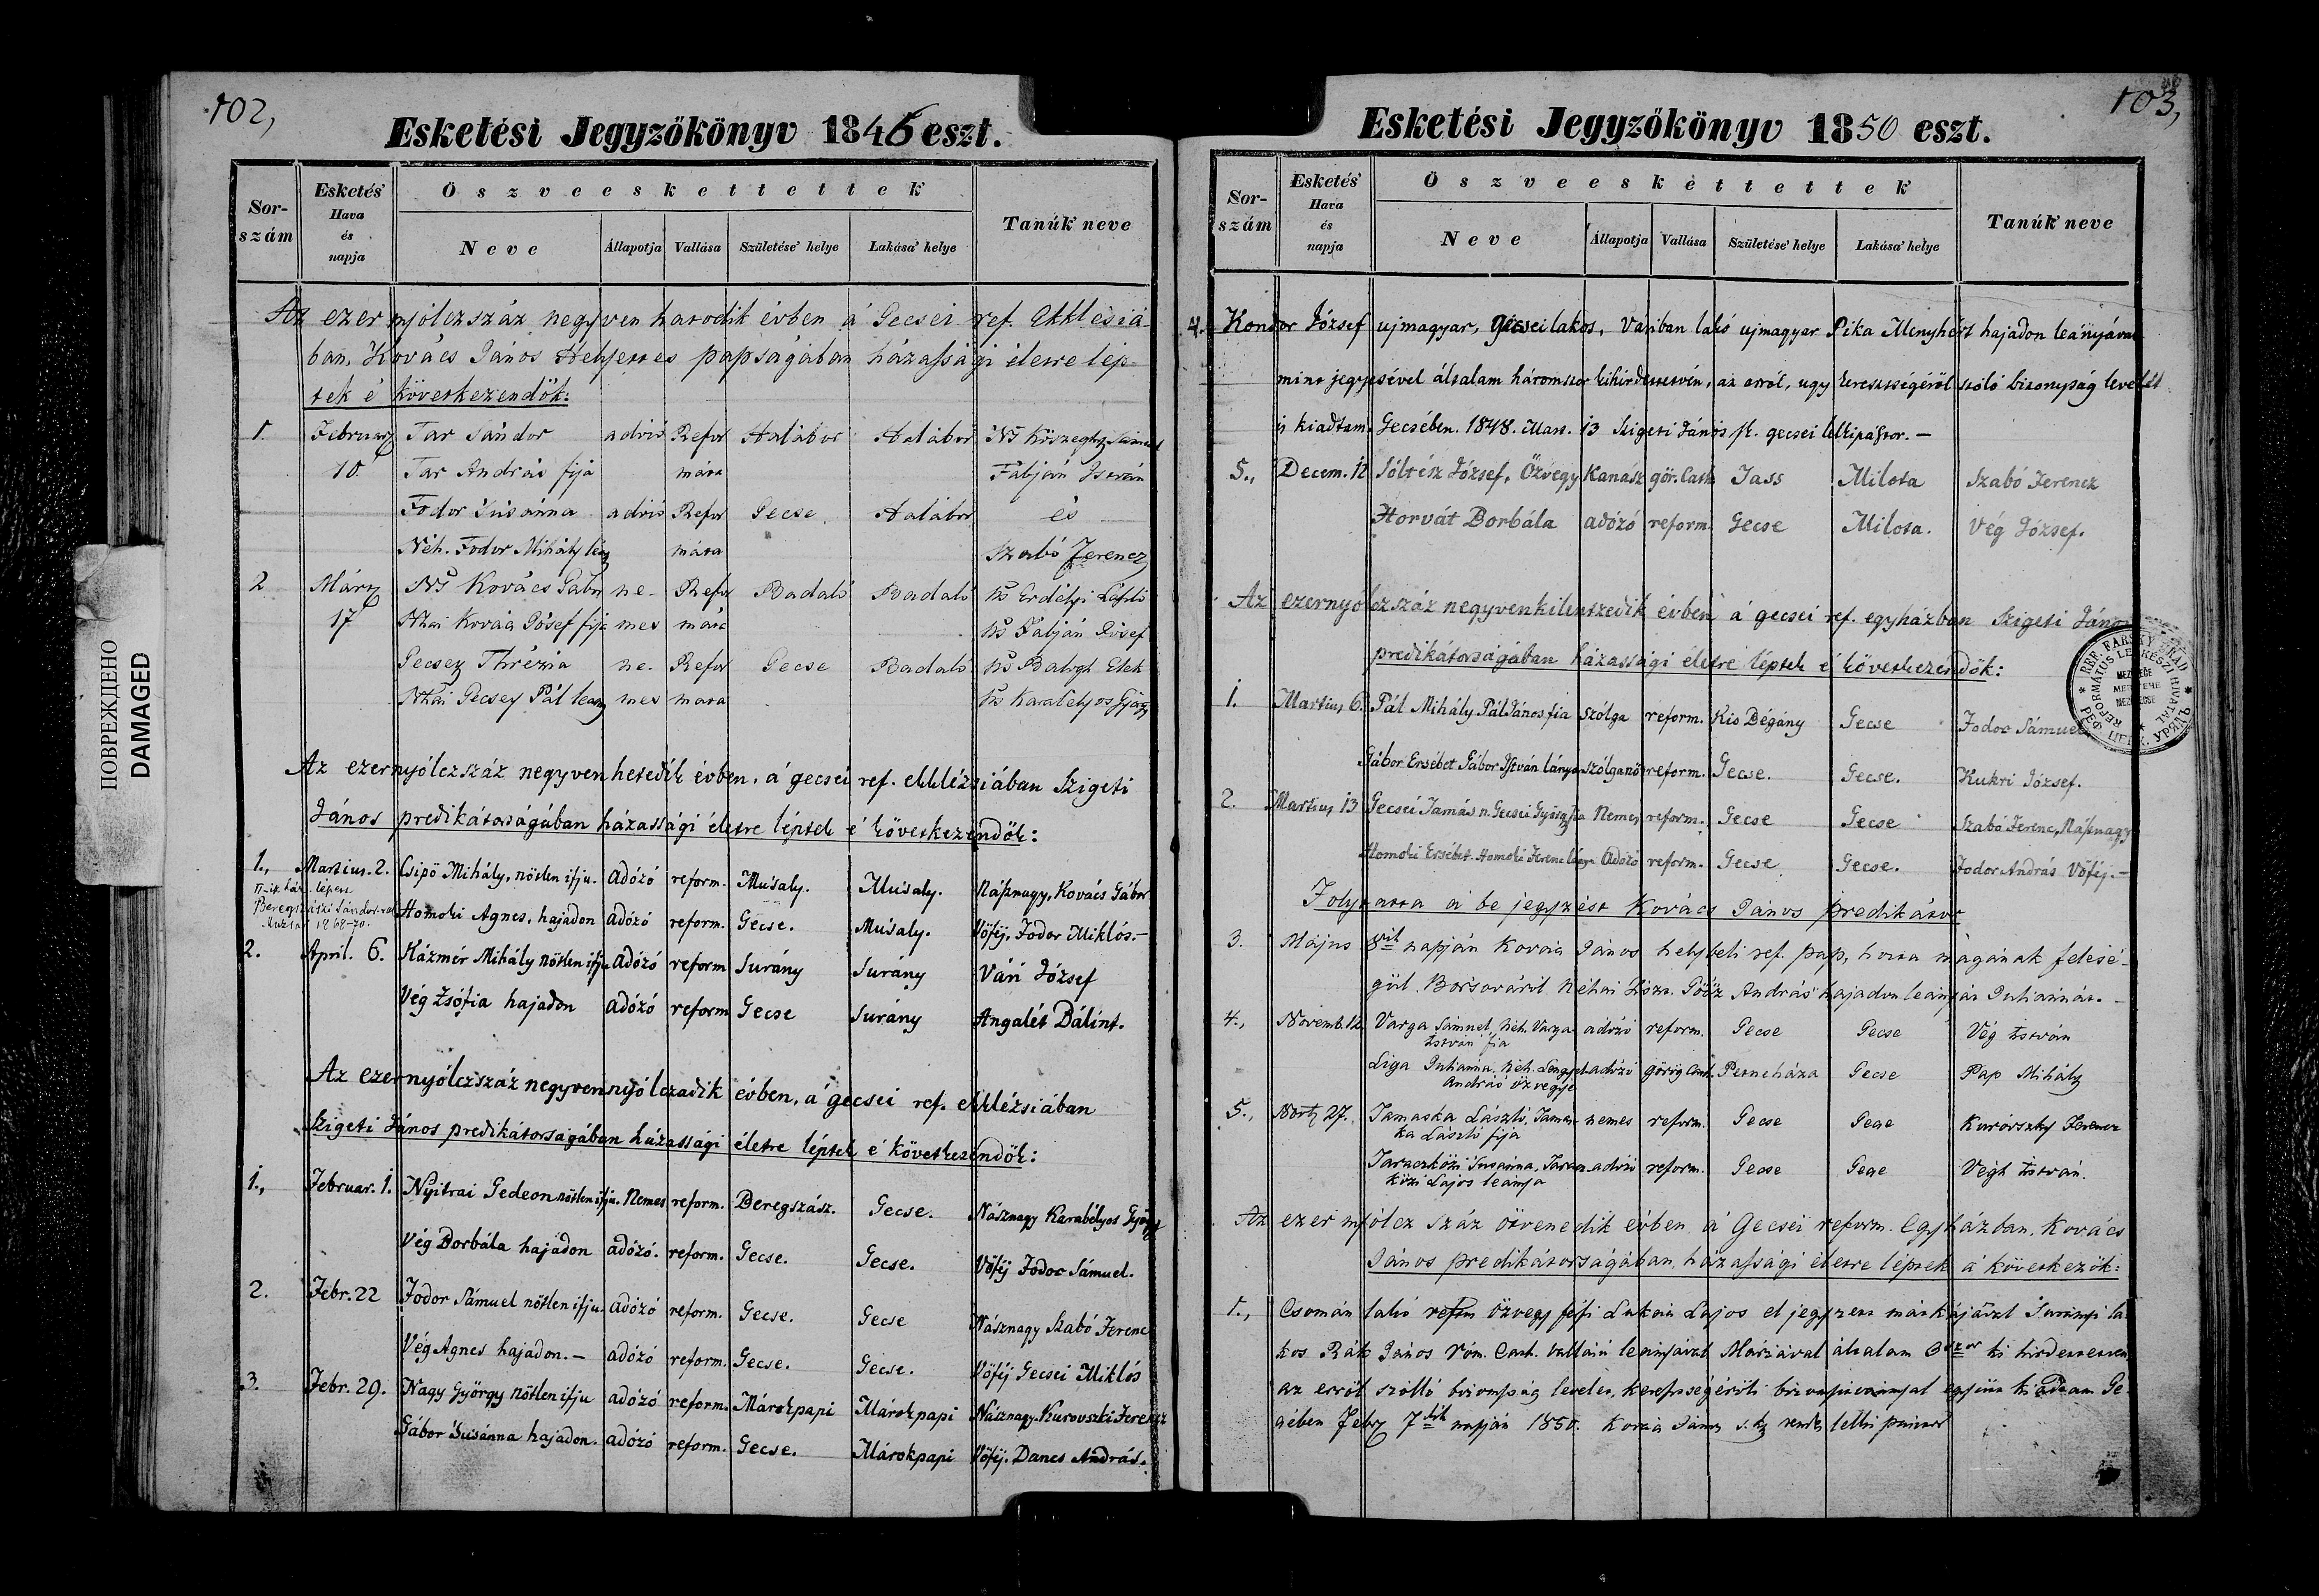 102,
Esketési Jegyzőkönyv 1846 eszt.
Sor-szám Esketés' Hava és napja Öszveeskettettek Tanúk' neve
Neve Állapotja Vallása Születése' helye Lakása' helye
Az ezer nyólczszáz negyven hatodik évben a' Gecsei ref. Ekklésiá-
ban, Kovács János papságában házassági életre lép-
tek é következendők:
1. Februar Tar Sándor adózó Refor Halábor Halábor Ns Kőszeghy Sámuel
10 Tar András fija máta Fabján István
Fodor Susánna adózó Refor Gecse Halábor és
Néh. Fodor Mihály leány máta Szabó Ferencz
2 Márz Ns Kovács Gábor ne- Refor Badaló Badaló Ns Erdélyi László
17 Néhai Kovács Jósef fija mes máta Ns Fabján Jósef
Gecsey Thrézia ne- Refor Gecse Badaló Ns Balogh Elek
Néhai Gecsey Pál leány mes máta Ns Karabélyos György
Az ezernyólczszáz negyven hetedik évben, a' gecsei ref. ekklézsiában Szigeti
János predikátorságában házassági életre léptek é következendők:
1., Martius. 2. Csipö Mihály, nőtlen ifju. adózó reform. Musaly. Musaly. Násznagy, Kovács Gábor
II-ik ház. lépett
Beregszászi Sándorral
1868-70.
Homoki Agnes, hajadon adózó reform. Gecse. Musaly. Vőféj, Fodor Miklós.-
2. April. 6. Kázmér Mihály nőtlen ifju adózó reform Surány Surány Vári József
Vég Zsófia hajadon adózó reform Gecse Surány Angalét Bálint.
Az ezernyólczszáz negyvennyólczadik évben, a' gecsei ref. ekklézsiában
Szigeti János predikátorságában házassági életre léptek é következendők:
1., Februar. 1. Nyitrai Gedeon nőtlen ifju. Nemes reform. Beregszász. Gecse. Násznagy Karabélyos György
Vég Borbála hajadon adózó. reform. Gecse. Gecse. Vőféj Fodor Sámuel.
2. Febr. 22 Fodor Sámuel nőtlen ifju. adózó reform. Gecse. Gecse Násznagy Szabó Ferencz
Vég Agnes hajadon.- adózó reform. Gecse. Gecse. Vőféj Gecsei Miklós
3. Febr. 29. Nagy György nőtlen ifju adózó reform. Márokpapi Márokpapi Násznagy. Kurovszki Ferencz
Gábor Susánna hajadon. adózó reform. Gecse. Márokpapi Vőféj. Dancs András.
ПОВРЕЖДЕНО
DAMAGED
103,
Esketési Jegyzőkönyv 1850 eszt.
Sor-szám Esketés' Hava és napja Öszveeskettettek Tanúk' neve
Neve Állapotja Vallása Születése' helye Lakása' helye
4. Kondor József ujmagyar, gecsei lakos, Váriban lakó ujmagyar Pika Menyhért hajadon leányával
mint jegyesével általam háromszor kihirdettetvén, az erről, ugy keresztségéről szóló bizonyság levelét
is kiadtam. Gecsében. 1848. Mart. 13 Szigeti János sk. gecsei lelkipásztor.-
5., Decem. 12 Sóltész József, Özvegy Kanász gör. Cath Jass Milota Szabó Ferencz
Horvát Borbála adózó reform. Gecse Milota. Vég József.
Az ezernyólczszáz negyvenkilentzedik évben a' gecsei ref. egyházban Szigeti János
predikátorságában házassági életre léptek é következendők:
1. Martius, 6. Pál Mihály Pál János fia szólga reform. Kis Dégány Gecse Fodor Sámuel
Gábor Ersébet Gábor István lánya szólganö reform. Gecse. Gecse. Kukri József.
2. Martius, 13 Gecsei Tamás n. Gecsei György fia Nemes reform. Gecse Gecse Szabó Ferenc, Násznagy
Homoki Ersébet. Homoki Ferenc lánya adózó reform. Gecse Gecse. Fodor András Vőféj.-
Folytatta a' be jegyzést Kovács János predikátor
3. Május 8ik napján Kovács János helybeli ref. pap, hozta magának felesé-
gül. Borsováról Néhai András hajadon leányát Juliánnát.-
4., Novemb. 12. Varga Sámuel, Néh. Varga István fia adózó reform. Gecse Gecse Vég István
Liga Julianna, Néh. Lengyel András özvegye adózó görög Cath. Peterháza Gecse Pap Mihály
5., Novb 27. Tamaska László, Tamaska László fija nemes reform. Gecse Gecse Kurovszky Ferencz
Taraczközi Susánna, Taraczközi Lajos leánya adózó reform. Gecse Gecse Végh István.
Az ezer nyólcz száz ötvenedik évben a' Gecsei reform. Egyházban, Kovács
János predikátorságában, házassági életre léptek a' következők:
1., Csomán lakó refor özvegy férfi Lukács Lajos el jegyzett Surányi la-
kos János Róm. Cath. vallású leányával Máriával általam 3szor ki hirdettetvén
az erről szólló bizonyság levelet, keresztségéröli együtt ki adtam Ge-
csében Febr 7dik napján 1850. Kovács János s.k. lelki pásztor
REF. FARSKÝ ÚRAD
REFORMÁTUS LELKÉSZI HIVATAL